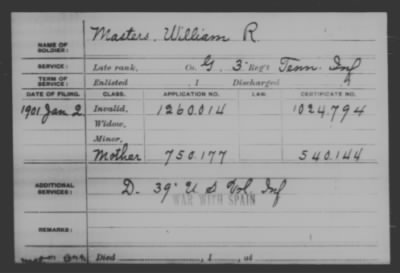 NAME OF SOLDIER: Masters, William R.
SERVICE: Late rank, Co. G. 3 Reg't Tenn. Inf
TERM OF SERVICE: Enlisted , 1 Discharged , 1
DATE OF FILING. CLASS. APPLICATION NO. LAW. CERTIFICATE NO.
1901 Jan 2 Invalid, 1260.014 1024.794
Widow,
Minor,
Mother 750.177 540.144
ADDITIONAL SERVICES: D. 39" U S Vol. Inf
WAR WITH SPAIN
REMARKS:
Died , 1 , at